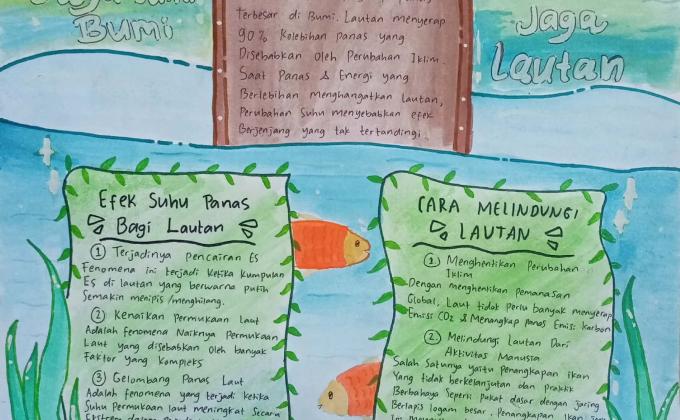 Bumi
Terbesar di Bumi. Lautan menyerap
90% Kelebihan panas yang
Disebabkan oleh Perubahan Iklim.
Saat Panas & Energi yang
Berlebihan menghangatkan Lautan,
Perubahan Suhu menyebabkan efek
Berjenjang yang tak tertandingi.
Jaga
Lautan
Efek Suhu Panas
Bagi Lautan
① Terjadinya pencairan Es
Fenomena ini terjadi Ketika Kumpulan
Es di lautan yang berwarna putih
Semakin menipis/menghilang.
② Kenaikan Permukaan Laut
Adalah fenomena Naiknya Permukaan
Laut yang disebabkan oleh banyak
Faktor yang Kompleks
③ Gelombang Panas Laut
Adalah fenomena yang terjadi Ketika
Suhu Permukaan laut meningkat Secara
CARA MELINDUNGI
LAUTAN
① Menghentikan Perubahan
Iklim
Dengan menghentikan pemanasan
Global, Laut tidak perlu banyak menyerap
Emisi CO2 & Menangkap panas Emisi Karbon
② Melindungi Lautan Dari
Aktivitas Manusia
Salah Satunya yaitu Penangkapan ikan
Yang tidak berkelanjutan dan praktik
Berbahaya Seperti Pukat dasar dengan jaring
Berlapis logam besar. Penangkapan Ikan